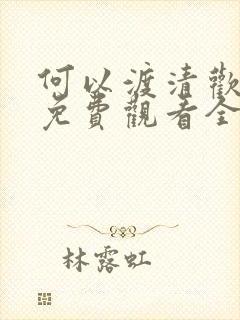 何以渡清歡
免費觀看全
林露虹